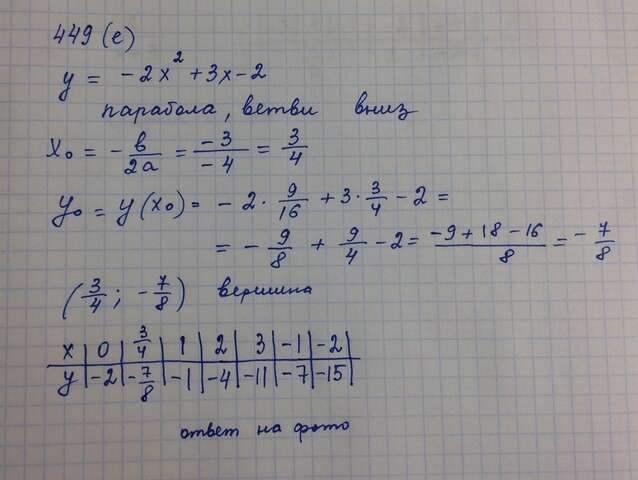 449(е)
y = -2x² + 3x - 2
парабола, ветви вниз
x₀ = -в/2а = -3/-4 = 3/4
y₀ = y(x₀) = -2·9/16 + 3·3/4 - 2 =
= -9/8 + 9/4 - 2 = (-9+18-16)/8 = -7/8
(3/4; -7/8) вершина
x | 0 | 3/4 | 1 | 2 | 3 | -1 | -2
y | -2 | -7/8 | -1 | -4 | -11 | -7 | -15
ответ на фото